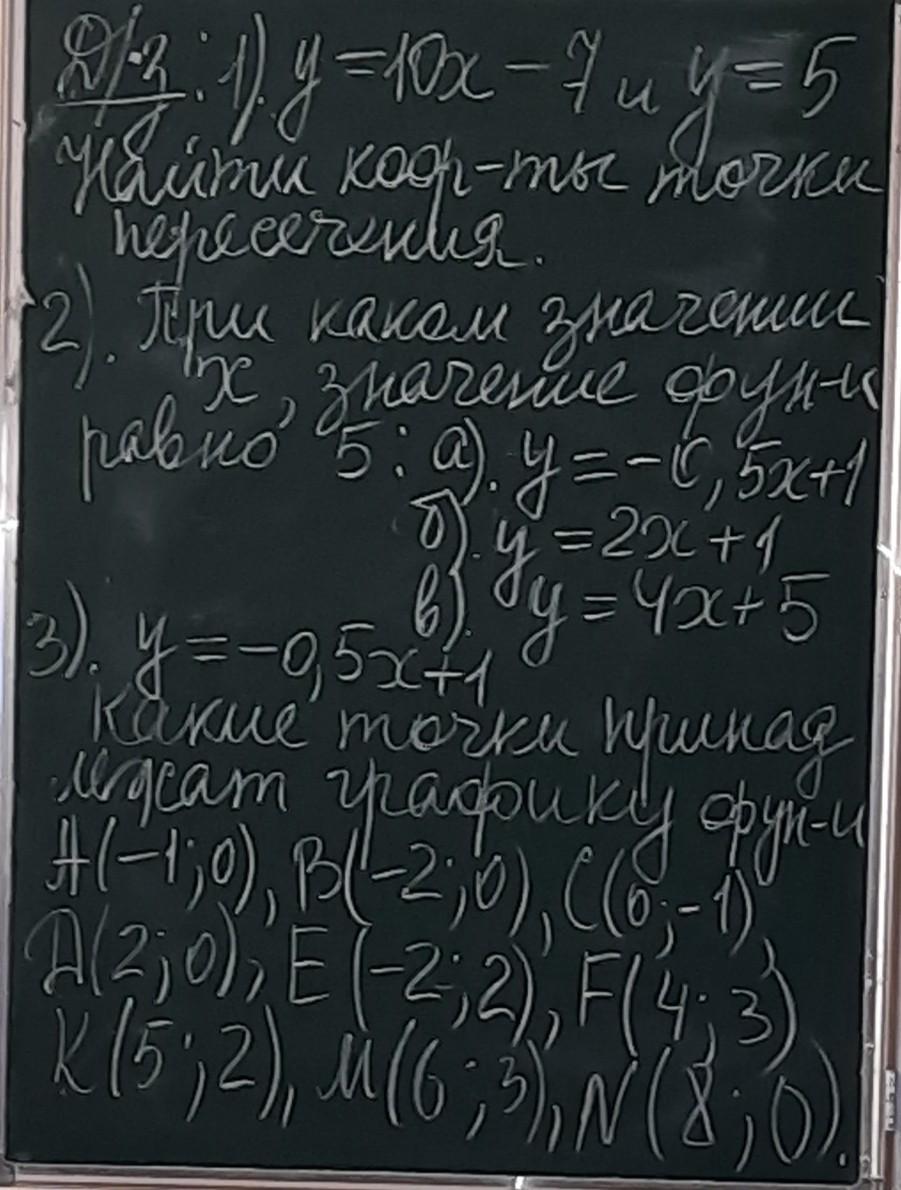 Д/з: 1). y = 10x − 7 и y = 5
Найти коор-ты точки
пересечения.
2). При каком значении
x, значение фун-и
равно 5: а). y = −0,5x+1
б). y = 2x + 1
в). y = 4x + 5
3). y = −0,5x+1
Какие точки принад
лежат графику фун-и
A(−1;0), B(−2;0), C(0;−1),
D(2;0), E(−2;2), F(4;3)
K(5;2), M(6;3), N(8;0).